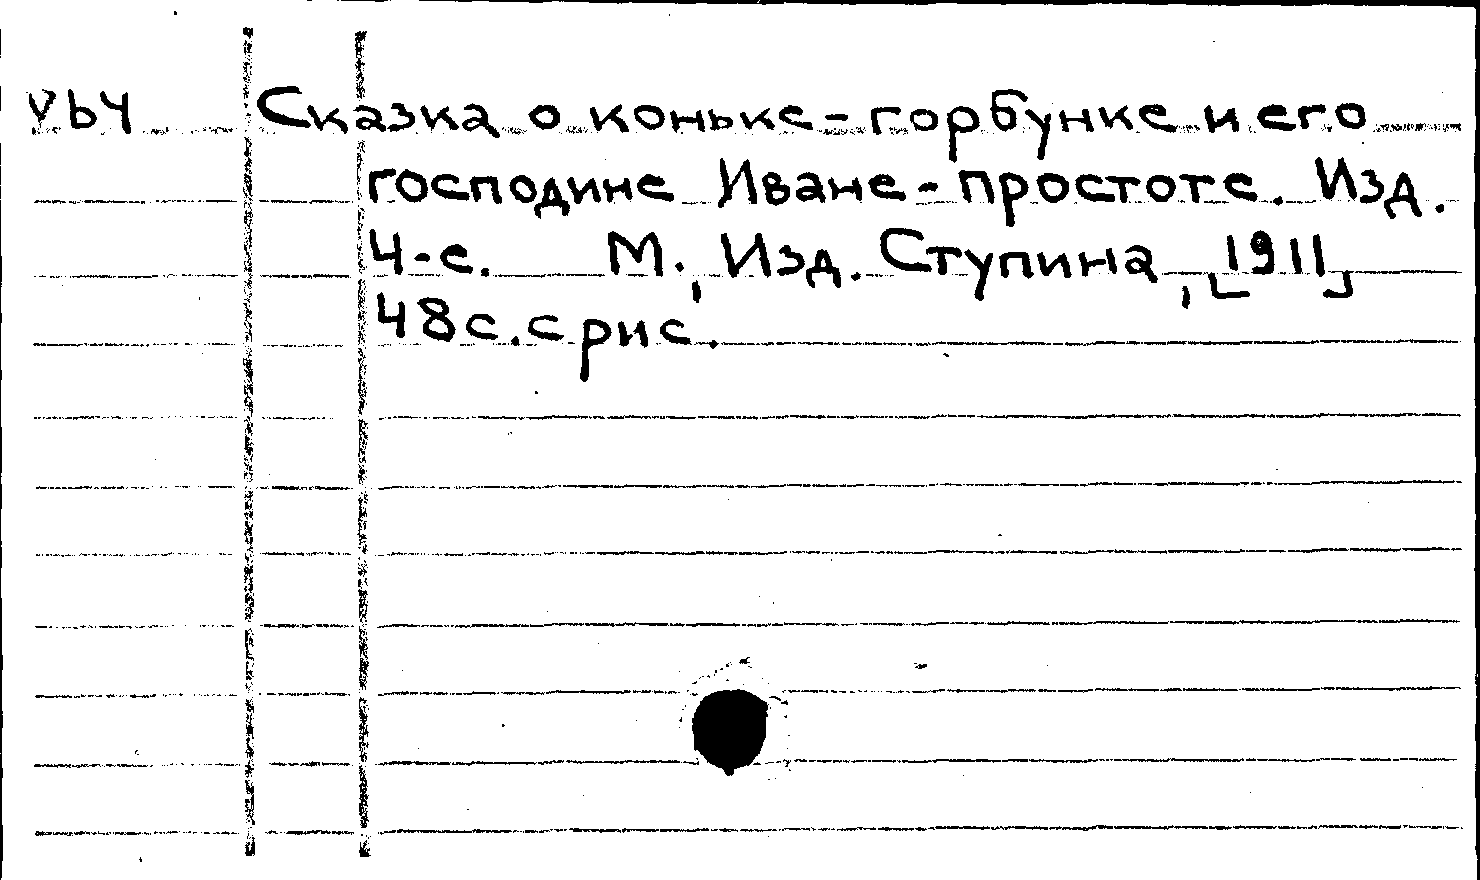 Vb4 Сказка о коньке-горбунке и его
господине Иване-простоте. Изд.
4-е. М., Изд. Ступина, [1911]
48 с. с рис.